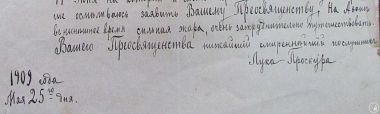 же осмѣливаюсь заявить Вашему Преосвященству, На Авонѣ
въ нынѣшнее время сильная жара, очень затруднительно путешествовать.
Вашего Преосвященства нижайший смиреннѣйший послушникъ
Лука Проскура
1909 года
Мая 25го дня.